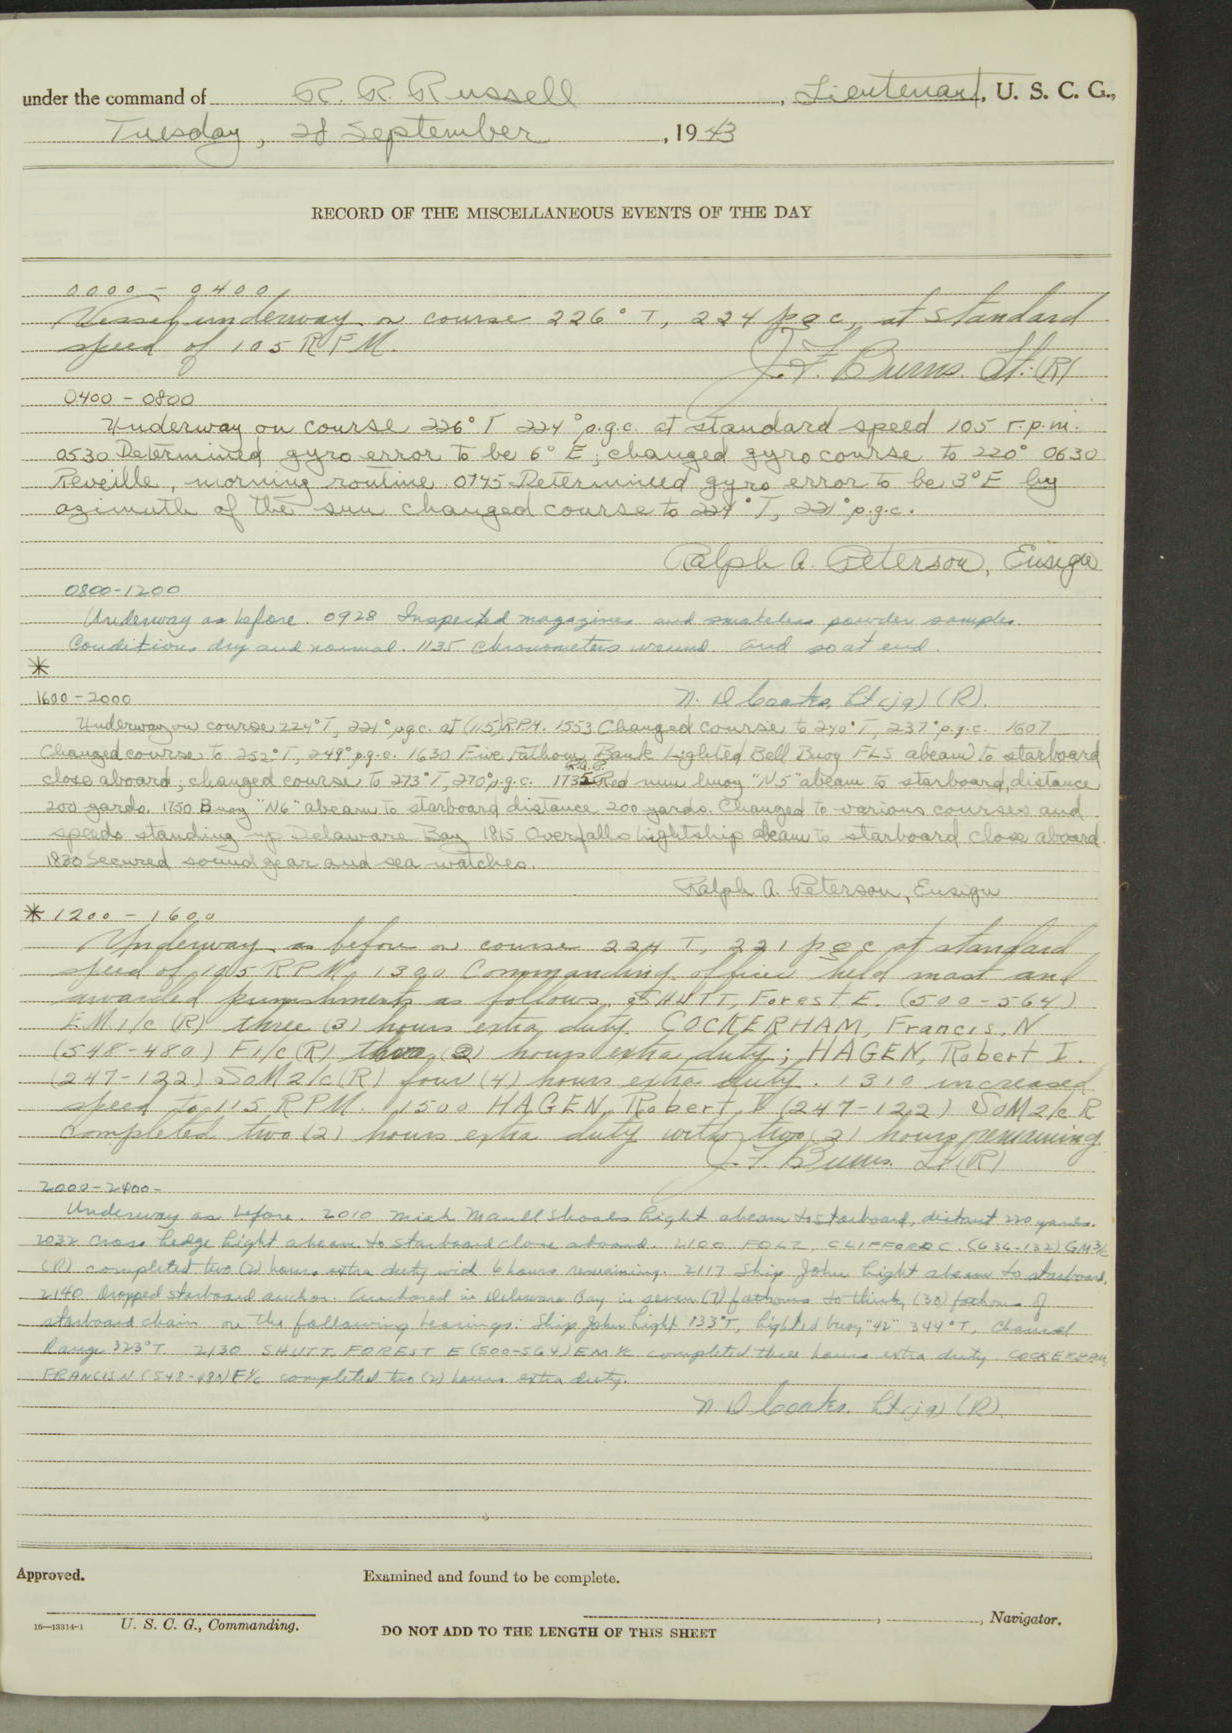 under the command of R. R. Russell, Lieutenant, U. S. C. G.,
Tuesday, 28 September, 1943
RECORD OF THE MISCELLANEOUS EVENTS OF THE DAY
0000 - 0400
Vessel underway on course 226° T, 224 pgc, at standard
speed of 105 RPM.
J. F. Burns. Lt. (R)
0400 - 0800
Underway on course 226° T 224° p.g.c. at standard speed 105 r.p.m.
0530 Determined gyro error to be 6° E; changed gyro course to 220° 0630
Reveille, morning routine. 0745 Determined gyro error to be 3° E by
azimuth of the sun changed course to 224° T, 221° p.g.c.
Ralph A. Peterson, Ensign
0800-1200
Underway as before. 0928 Inspected magazines and smokeless powder samples.
Conditions dry and normal. 1135 Chronometers wound and so at end.
*
N. D Coates, Lt(jg) (R).
1600-2000
Underway on course 224° T, 221° pgc. at (115) RPM. 1553 Changed course to 240° T, 237° p.g.c. 1607
Changed course to 252° T, 249° p.g.c. 1630 Five Fathom Bank Lighted Bell Buoy FLS abeam to starboard
close aboard; changed course to 273° T, 270° p.g.c. 1735 Red nun buoy "N5" abeam to starboard, distance
200 yards. 1750 Buoy "N6" abeam to starboard distance 200 yards. Changed to various courses and
speeds standing up Delaware Bay 1815 Overfalls Lightship abeam to starboard close aboard.
1830 Secured sound gear and sea watches.
Ralph A. Peterson, Ensign
* 1200 - 1600
Underway as before on course 224 T, 221 pgc at standard
speed of 105 RPM, 1300 Commanding officer held mast and
awarded punishments as follows, SHUTT, Forest E. (500-564)
EM1/c (R) three (3) hours extra duty. COCKERHAM, Francis, N
(548-480) F1/c (R) two (2) hours extra duty; HAGEN, Robert I.
(247-122) SoM2/c (R) four (4) hours extra duty. 1310 increased
speed to 115 RPM. 1500 HAGEN, Robert, I (247-122) SoM2/c R
completed two (2) hours extra duty with two (2) hours remaining
J. F. Burns. Lt (R)
2000-2400-
Underway as before. 2010 Miah Maull Shoals Light abeam to starboard, distant 220 yards.
2032 Cross Ledge Light abeam to starboard close aboard. 2100 FOLZ, CLIFFORD C. (636-132) GM3/c
(R) completed two (2) hours extra duty with 6 hours remaining. 2117 Ship John Light abeam to starboard.
2140 Dropped starboard anchor. Anchored in Delaware Bay in seven (7) fathoms to thirty (30) fathoms of
starboard chain on the following bearings: Ship John Light 133° T, lighted buoy "42" 344° T, Channel
Range 323° T 2130 SHUTT, FOREST E (500-564) EM 1/c completed three hours extra duty. COCKERHAM,
FRANCIS N (548-480) F1/c completed two (2) hours extra duty.
N. D Coates. Lt(jg) (R).
Approved.
Examined and found to be complete.
U. S. C. G., Commanding.
, , Navigator.
16—13314-1
DO NOT ADD TO THE LENGTH OF THIS SHEET